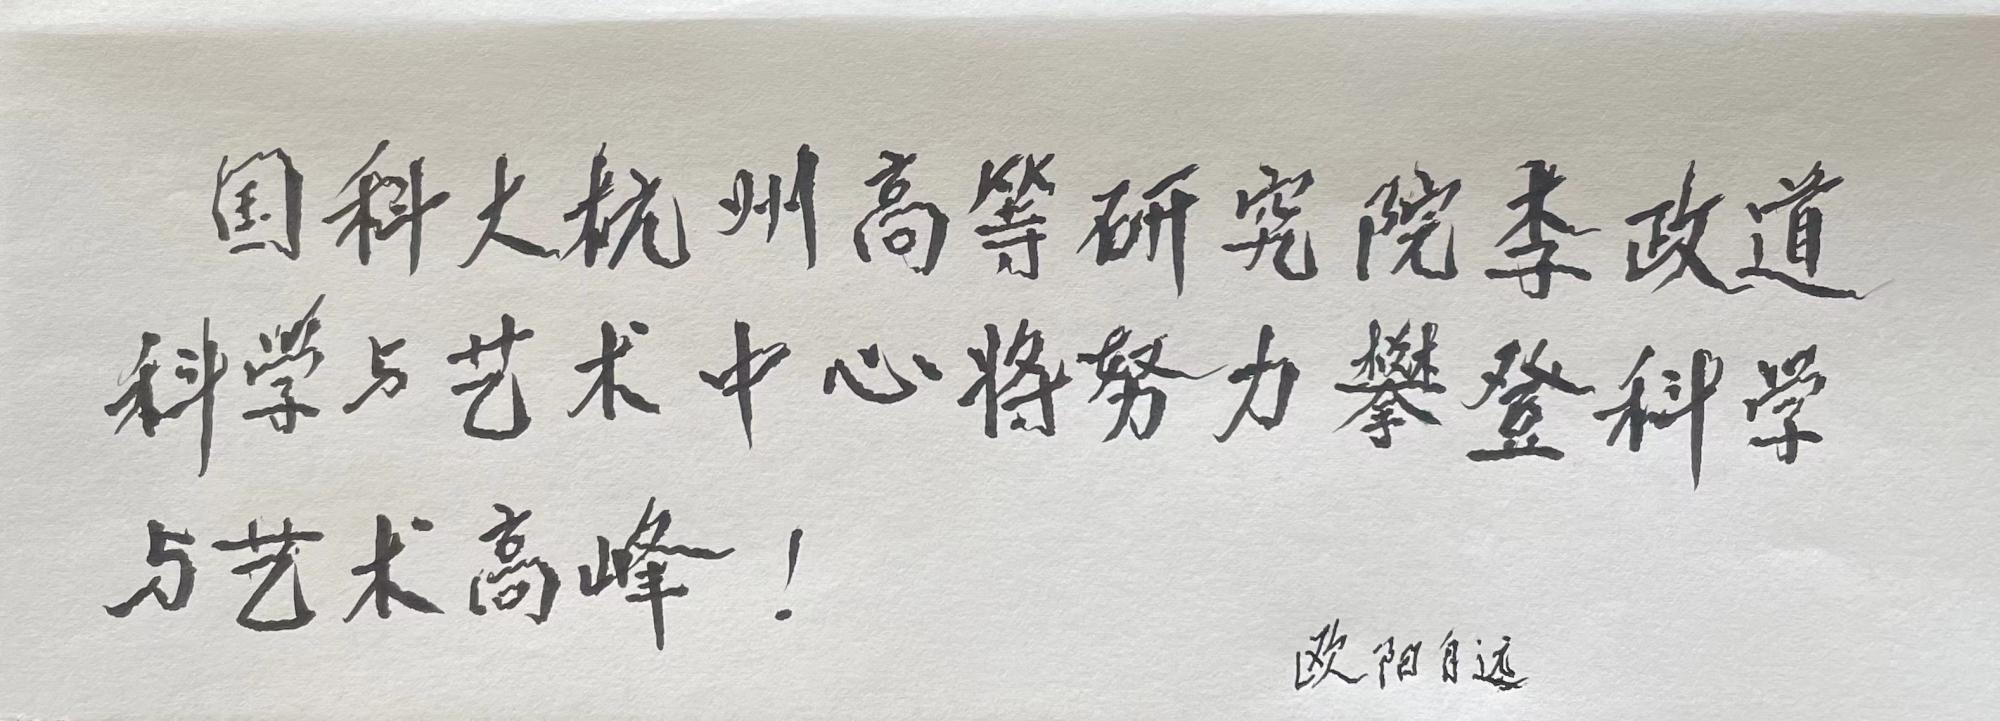 国科大杭州高等研究院李政道
科学与艺术中心将努力攀登科学
与艺术高峰！
欧阳自远